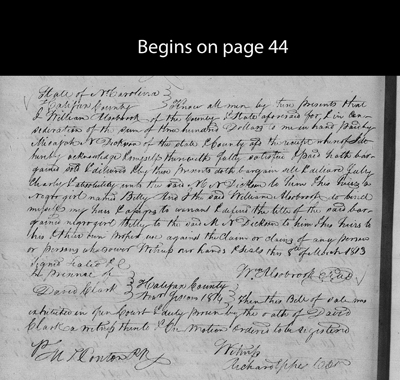 Begins on page 44
State of N Carolina
Halifax County } Know all men by these presents that
I William Alsobrook of the County & State aforesaid for & in con
sideration of the sum of three hundred Dollars to me in hand paid by
Micajah N Dickson of the state & County afs the receipt whereof I do
hereby acknowledge & myself therewith fully satisfied & paid hath bar
gained sold & delivered & by these presents doth bargain sell & deliver fully
Clearly & absolutely unto the said M N Dickson to him his heirs a
Negro girl named Billy And I the said William Alsobrook to bind
myself my heirs & assigns to warrant & defend the title of the said bar
gained negro girl Billy to the said M N Dickson to him his heirs to
his & their use against the Claim or Claims of any person
or persons whatsoever Witness our hands & seals this 8th of March 1813
Signed Sealed & D
In Presence of
David Clark
Wm Alsobrook Seal
Halifax County
1814 } Then this Bill of sale was
exhibited in Open Court & duly proven by the oath of David
Clark a witness thereto & On Motion Ordered to be registered
Witness